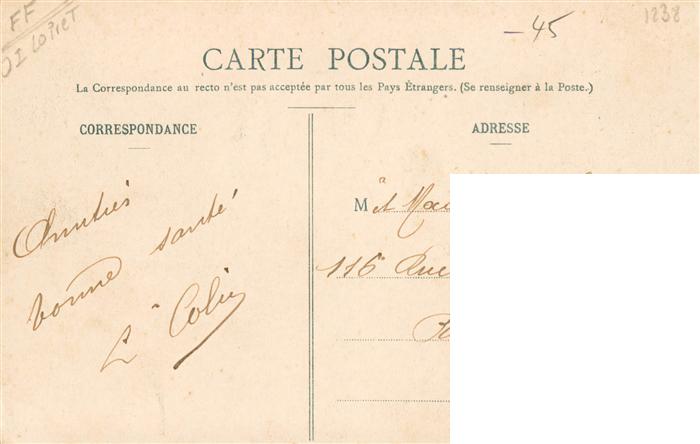 FF
Loiret
-45
1238
CARTE POSTALE
La Correspondance au recto n'est pas acceptée par tous les Pays Étrangers. (Se renseigner à la Poste.)
CORRESPONDANCE
ADRESSE
Amitiés
bonne santé
L Colin
M et
116 Rue